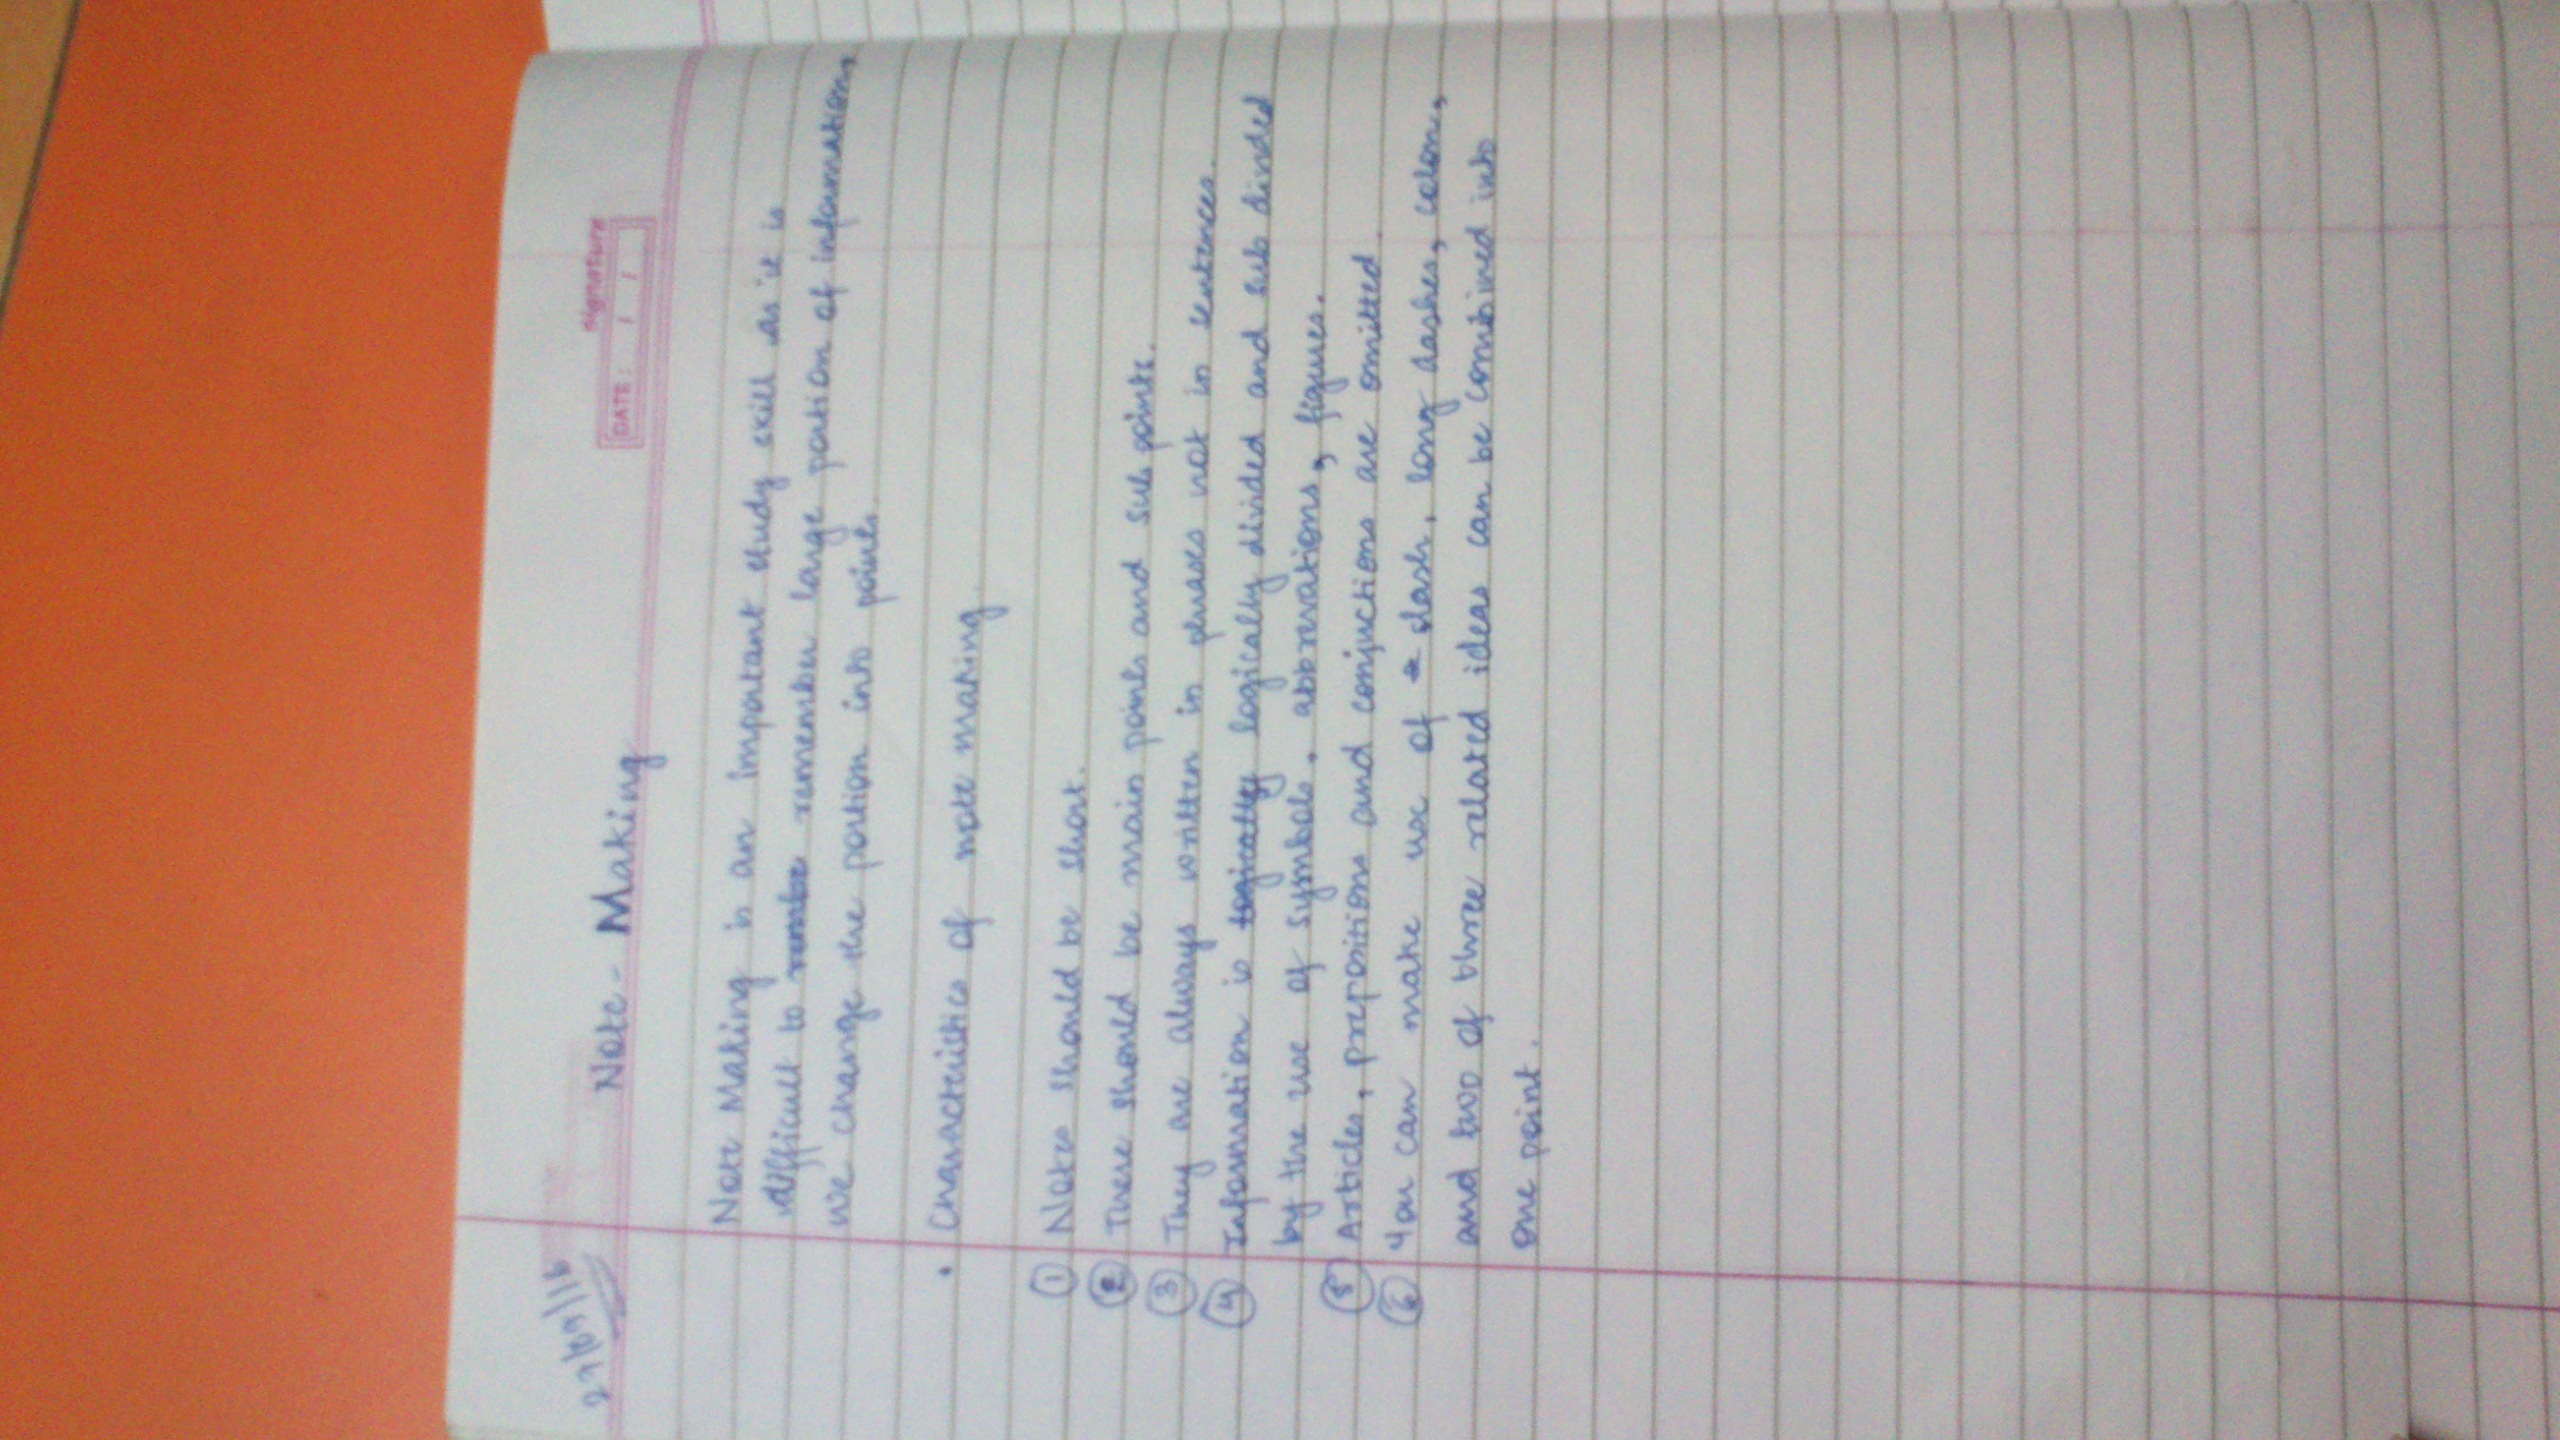 27/07/16
Note - Making
Signature
DATE: / /
Note Making is an important study skill as it is
difficult to remember large portion of information,
we change the portion into points.
• Characteristics of note making
① Notes should be short.
② There should be main points and sub points.
③ They are always written in phrases not in sentences.
④ Information is logically logically divided and sub divided
by the use of symbols, abbrevations, figures.
⑤ Articles, prepositions and conjuctions are omitted.
⑥ You can make use of dash, long dashes, colons,
and two of three related ideas can be combined into
one point.